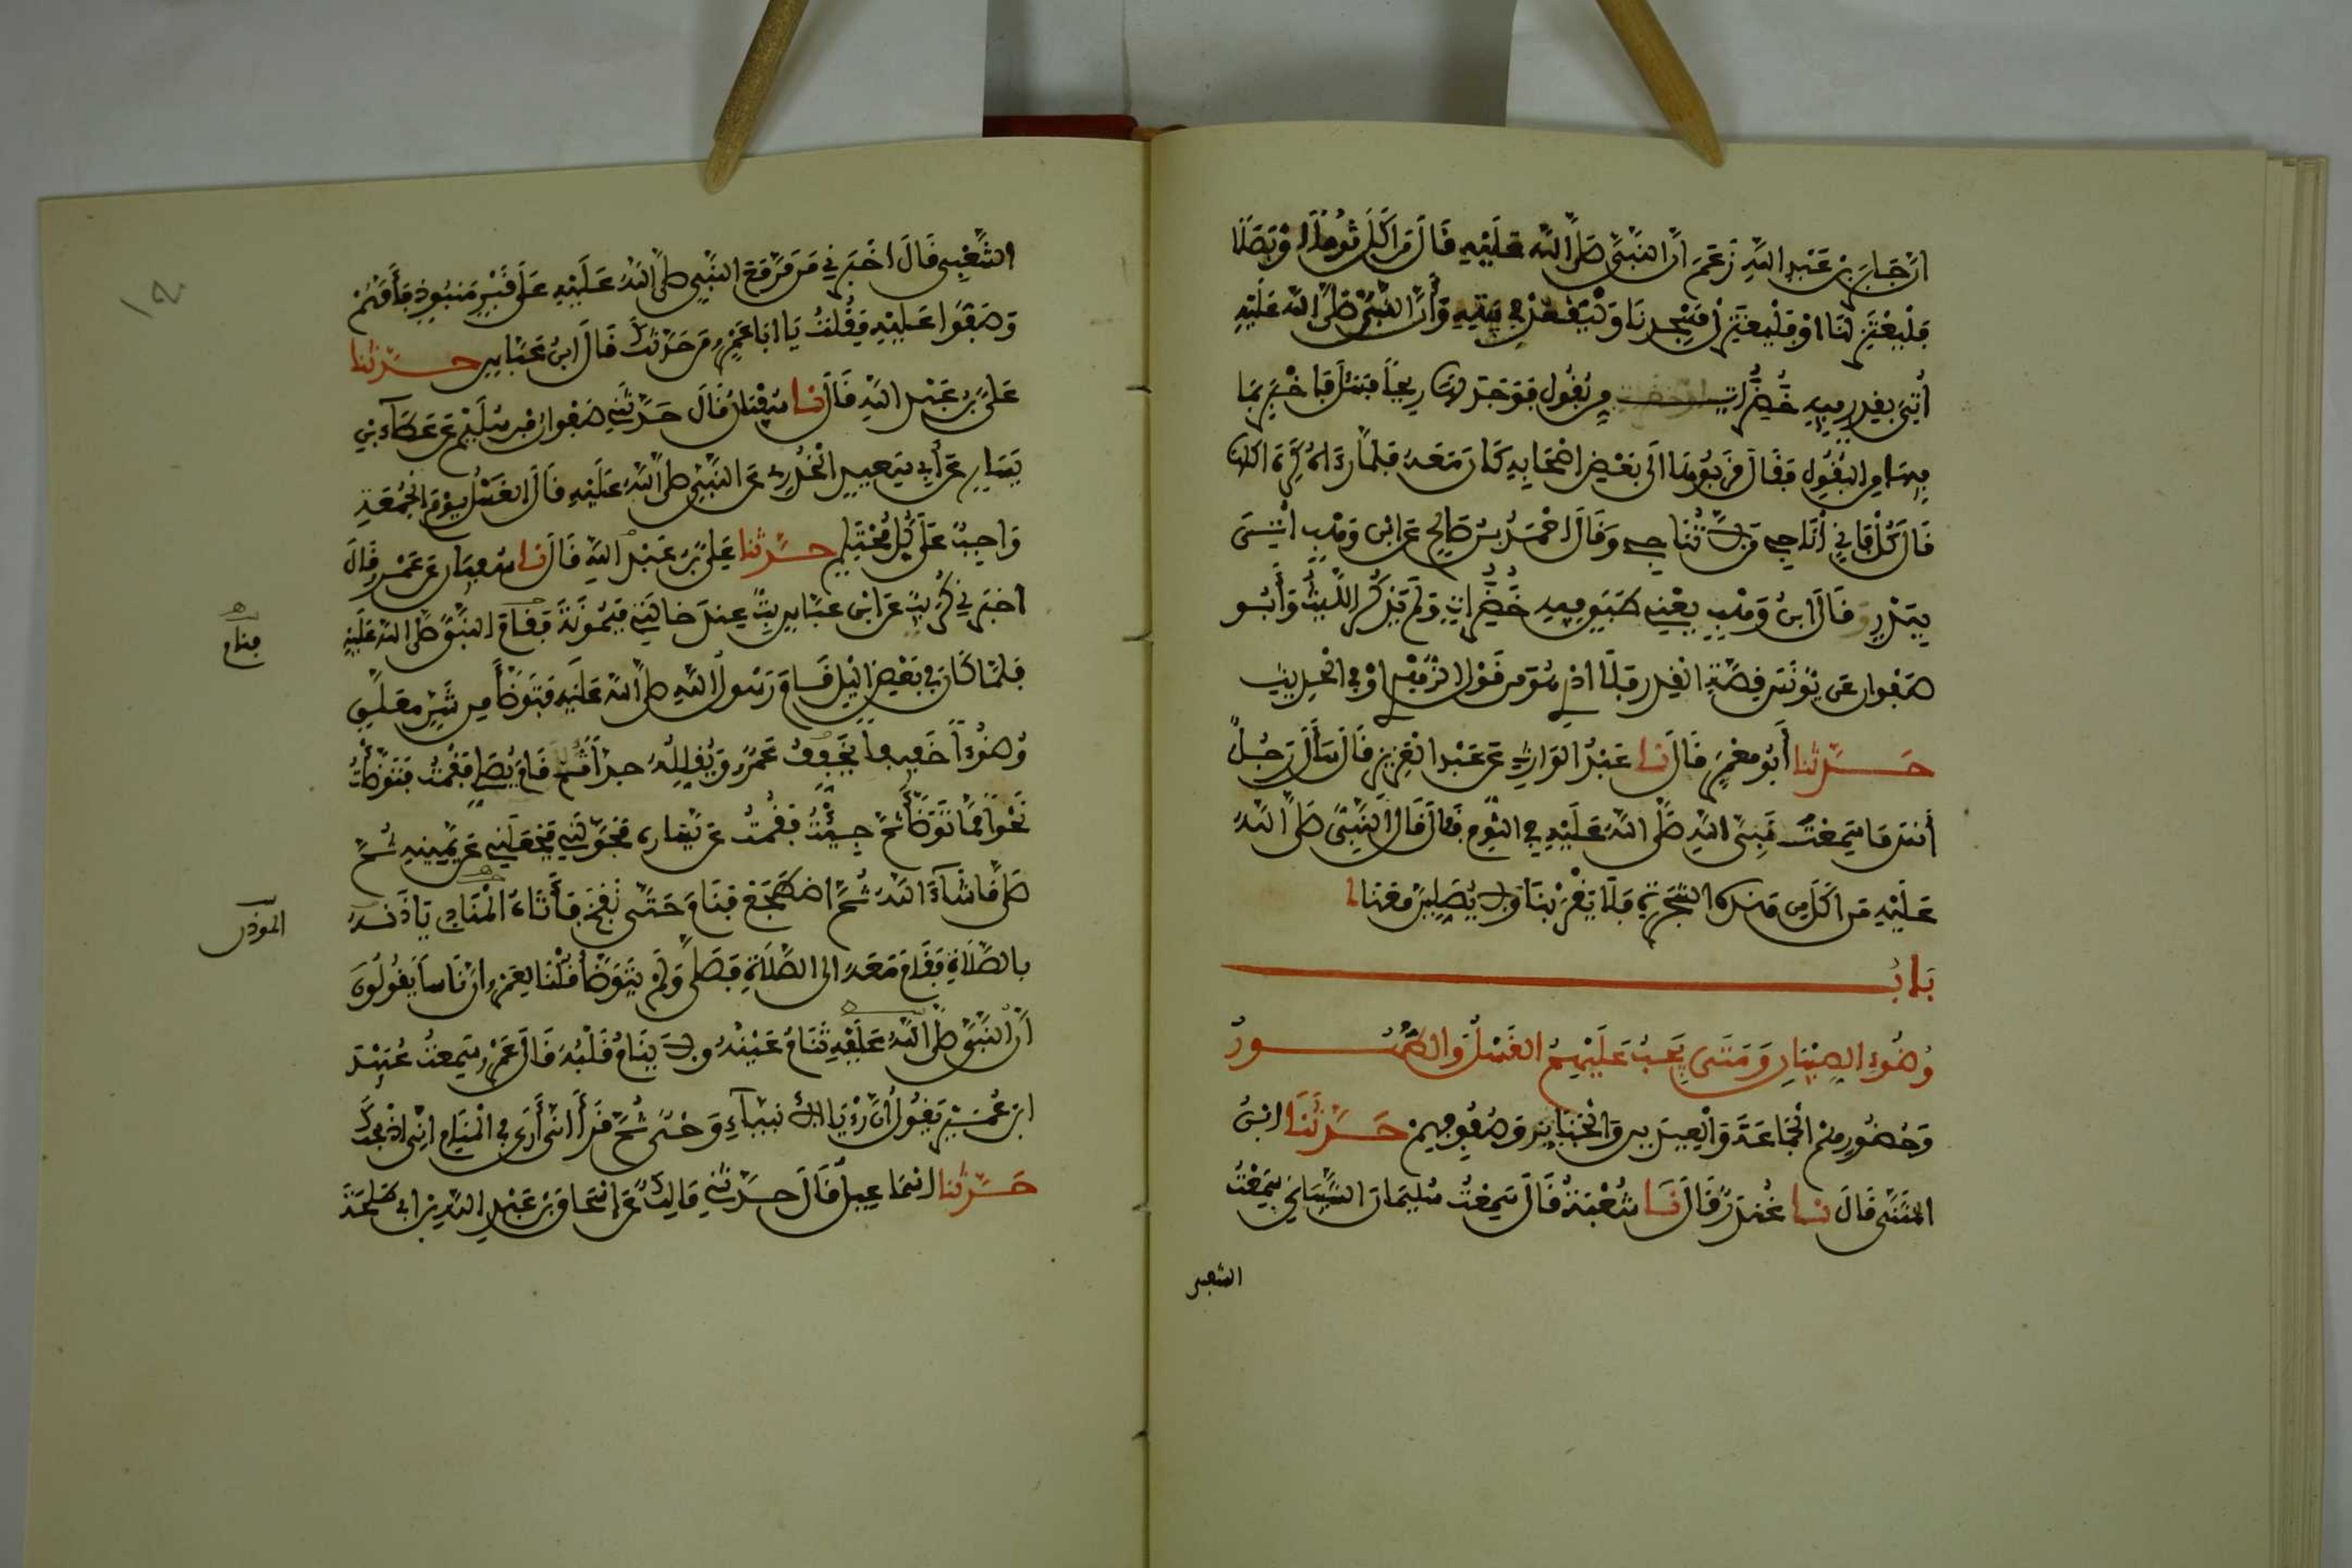 ان جابر بن عبد الله زعم ان النبي صلى الله عليه قال من اكل ثوما او بصلا
فليعتزلنا او فليعتزل مسجدنا وليقعد في بيته وأن النبي صلى الله عليه
أتي بقدر فيه خضرات من بقول فوجد لها ريحا فسأل فاخبر بما
فيها من البقول فقال قربوها الى بعض اصحابه كان معه فلما رءاه كره اكلها
قال كل فاني أناجي من لا تناجي وقال احمد بن صالح عن ابن وهب أتي
ببدر وقال ابن وهب يعني طبقا فيه خضرات ولم يذكر الليث وأبو
صفوان عن يونس قصة القدر فلا ادري هو من قول الزهري او في الحديث
حدثنا أبو معمر قال نا عبد الوارث عن عبد العزيز قال سأل رجل
أنس ما سمعت نبي الله صلى الله عليه في الثوم فقال قال النبي صلى الله
عليه من اكل من هذه الشجرة فلا يقربنا ولا يصلين معنا
باب
وضوء الصبيان ومتى يجب عليهم الغسل والطهور
وحضورهم الجماعة والعيدين والجنائز وصفوفهم حدثنا ابن
المثنى قال نا غندر قال نا شعبة قال سمعت سليمان الشيباني سمعت
الشعبي
الشعبي قال اخبرني من مر مع النبي صلى الله عليه على قبر منبوذ فأمهم
وصفوا عليه فقلت يا ابا عمرو من حدثك قال ابن عباس حدثنا
علي بن عبد الله قال نا سفين قال حدثني صفوان بن سليم عن عطاء بن
يسار عن أبي سعيد الخدري عن النبي صلى الله عليه قال الغسل يوم الجمعة
واجب على كل محتلم حدثنا علي بن عبد الله قال نا سفيان عن عمرو قال
اخبرني كريب عن ابن عباس بت عند خالتي ميمونة فقام النبي صلى الله عليه
فنام
فلما كان في بعض الليل قام رسول الله صلى الله عليه فتوضأ من شن معلق
وضوءا خفيفا يخففه عمرو ويقلله جدا ثم قام يصلي فقمت فتوضأت
نحوا مما توضأ ثم جئت فقمت عن يساره فحولني فجعلني عن يمينه ثم
صلى ما شاء الله ثم اضطجع فنام حتى نفخ فأتاه المنادي يأذنه
المؤذن
بالصلاة فقام معه الى الصلاة فصلى ولم يتوضأ قلنا لعمرو ان ناسا يقولون
أن النبي صلى الله عليه تنام عينه ولا ينام قلبه قال عمرو سمعت عبيد
ابن عمير يقول ان رؤيا الانبياء وحي ثم قرأ اني أرى في المنام اني اذبحك
حدثنا اسماعيل قال حدثني مالك عن اسحاق بن عبد الله بن ابي طلحة